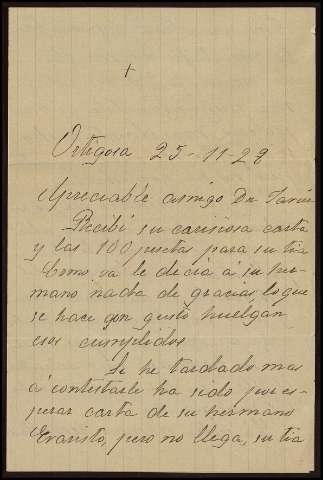 +
Ortigosa 25-11-28
Apreciable amigo Dn Javier
Recibí su cariñosa carta
y las 100 pesetas para su tia
Como ya le decia á su her-
mano nada de gracias, lo que
se hace con gusto huelgan
esos cumplidos
Si he tardado mas
á contestarle ha sido por es-
perar carta de su hermano
Evaristo, pero no llega, su tia